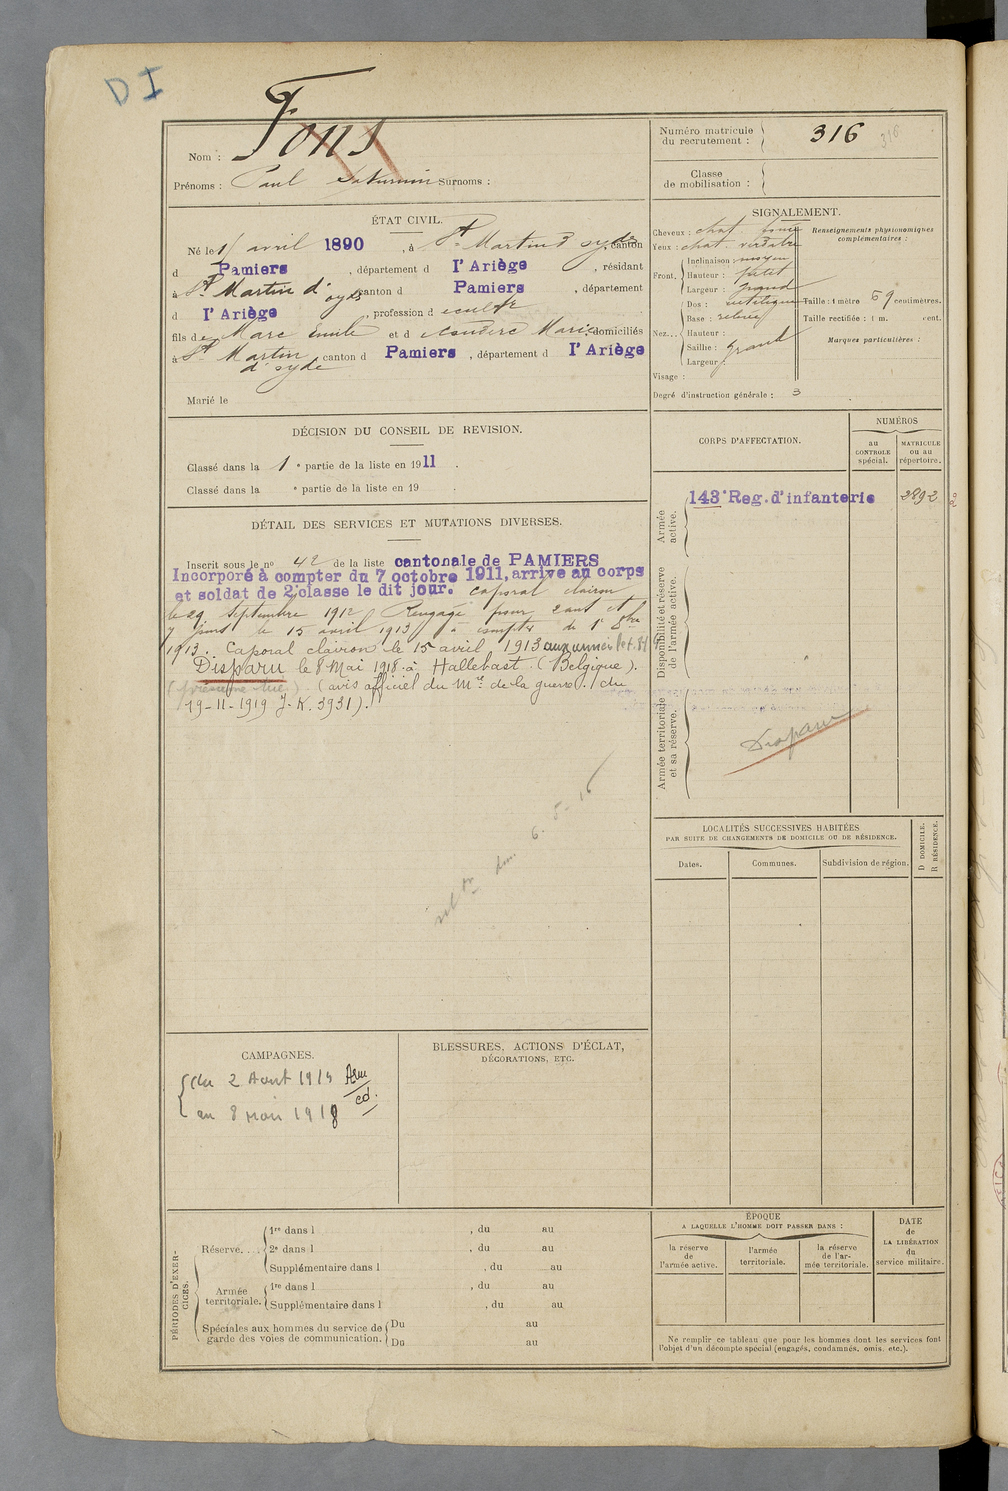 D I
Nom : Fons
Prénoms : Paul Saturnin Surnoms :
Numéro matricule du recrutement : 316
316
Classe de mobilisation :
ÉTAT CIVIL.
Né le 15 avril 1890, à St Martin d'oyde, canton
d Pamiers, département d l'Ariège, résidant
à St Martin d'oyde canton d Pamiers, département
d l'Ariège, profession d
fils de Marc Emile et d Marie domiciliés
à St Martin d'oyde, canton d Pamiers, département d l'Ariège
Marié le
SIGNALEMENT.
Cheveux : chat. foncé
Yeux : chat. verdatre
Front. Inclinaison : moyen
Hauteur : petit
Largeur : grand
Nez... Dos :
Base : relevé
Hauteur :
Saillie : grand
Largeur :
Visage :
Degré d'instruction générale : 3
Renseignements physionomiques complémentaires :
Taille : 1 mètre 59 centimètres.
Taille rectifiée : 1 m. cent.
Marques particulières :
DÉCISION DU CONSEIL DE REVISION.
Classé dans la 1e partie de la liste en 1911.
Classé dans la e partie de la liste en 19 .
CORPS D'AFFECTATION.
NUMÉROS
au CONTROLE spécial.
MATRICULE ou au répertoire.
Armée active.
143e Reg. d'infanterie 2892
Disponibilité et réserve de l'armée active.
Armée territoriale et sa réserve.
Disparu
DÉTAIL DES SERVICES ET MUTATIONS DIVERSES.
Inscrit sous le no 42 de la liste cantonale de PAMIERS
Incorporé à compter du 7 octobre 1911, arrive au corps
et soldat de 2e classe le dit jour. Caporal clairon
le 29 Septembre 1912 Rengagé pour 2 ans et
7 jours le 15 avril 1913 à compter du 1er 8bre
1913. Caporal clairon le 15 avril 1913 aux armées
Disparu le 8 Mai 1918 à Hallebast (Belgique).
(avis officiel du Mre de la guerre) du
19-11-1919 J.K. 3931).
6-5-16
LOCALITÉS SUCCESSIVES HABITÉES
PAR SUITE DE CHANGEMENTS DE DOMICILE OU DE RÉSIDENCE.
Dates.
Communes.
Subdivision de région.
D DOMICILE.
R RÉSIDENCE.
CAMPAGNES.
du 2 Aout 1914
au 8 Mai 1918
BLESSURES, ACTIONS D'ÉCLAT,
DÉCORATIONS, ETC.
PÉRIODES D'EXERCICES.
Réserve....
1re dans l , du au
2e dans l , du au
Supplémentaire dans l , du au
Armée territoriale.
1re dans l , du au
Supplémentaire dans l , du au
Spéciales aux hommes du service de garde des voies de communication.
Du au
Du au
ÉPOQUE
A LAQUELLE L'HOMME DOIT PASSER DANS :
la réserve de l'armée active.
l'armée territoriale.
la réserve de l'armée territoriale.
DATE de LA LIBÉRATION du service militaire.
Ne remplir ce tableau que pour les hommes dont les services font
l'objet d'un décompte spécial (engagés, condamnés, omis, etc.).